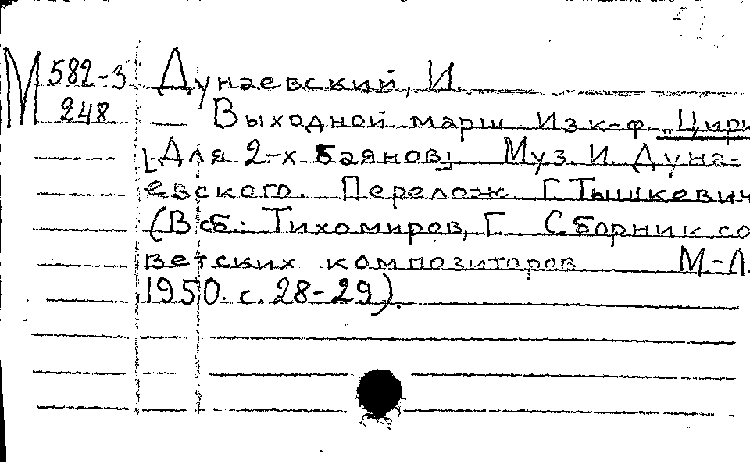 М 582-3 Дунаевский, И.
248 Выходной марш Из к-ф „Цирк
[Для 2-х баянов] Муз И. Дуна-
евского. Перелож. Г. Тышкевич
(В сб.: Тихомиров, Г. Сборник со
ветских композиторов М-Л.
1950. с. 28-29).